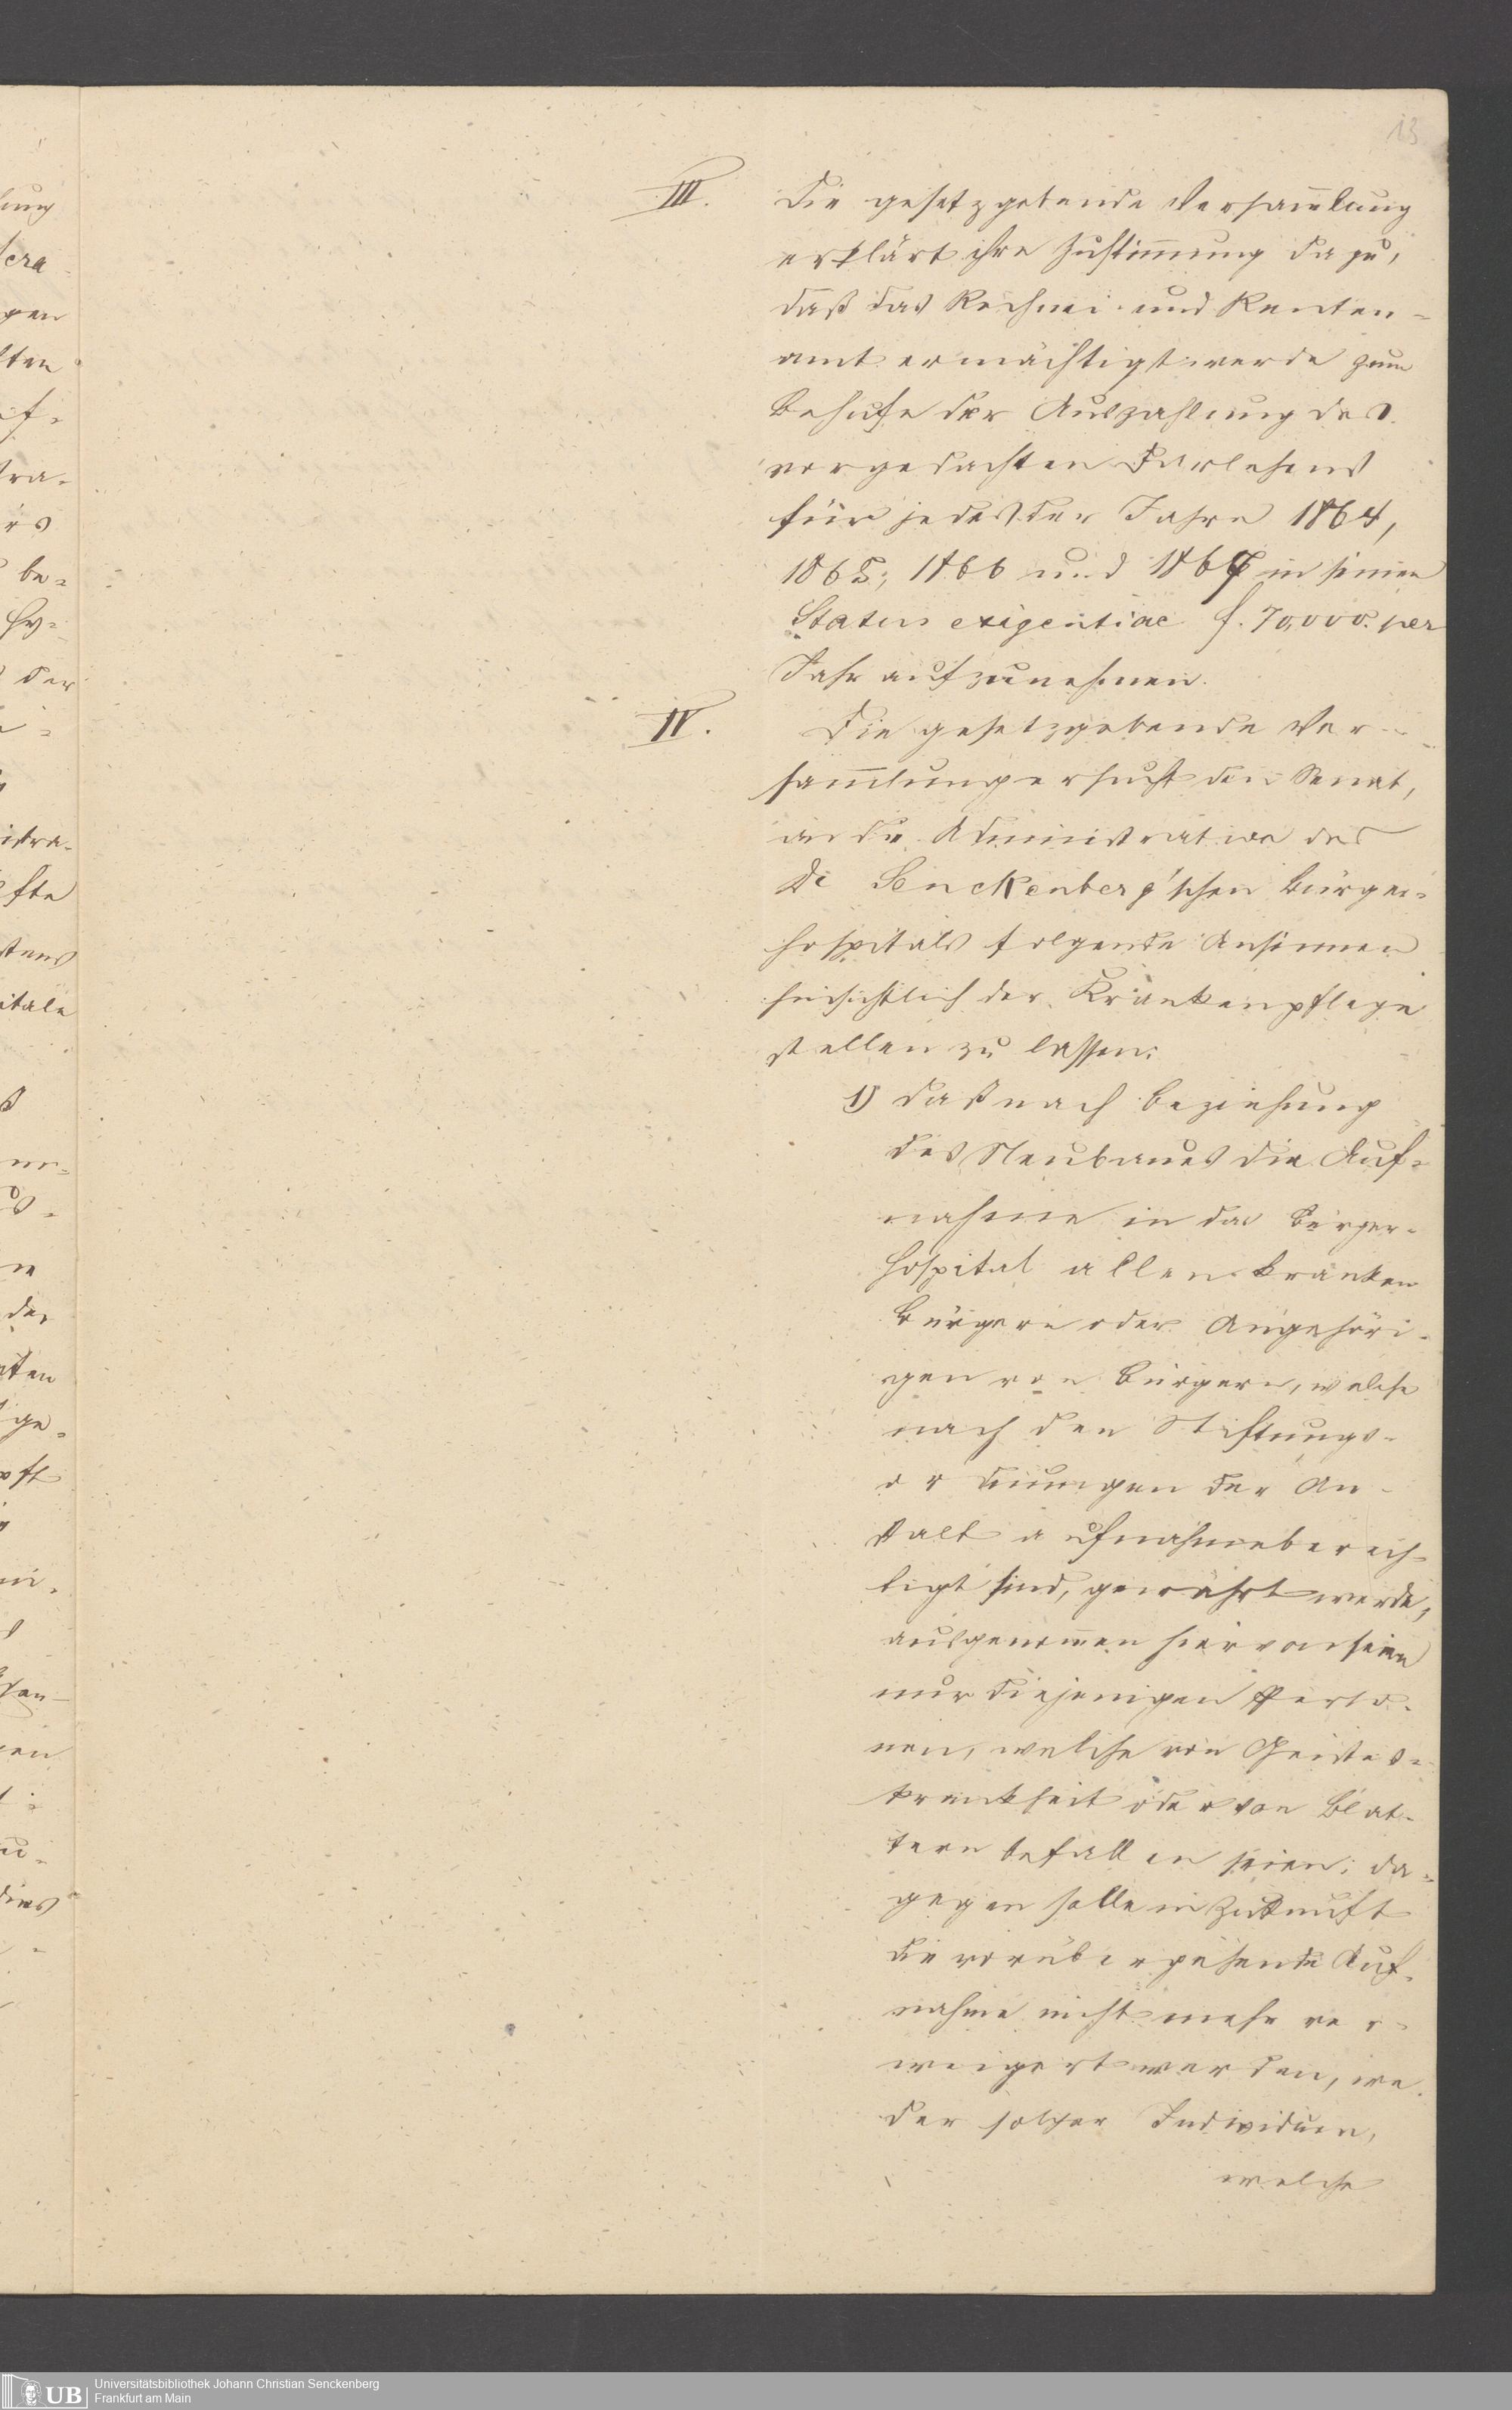 13
III. Die gesetzgebende Versam̄lung
erklärt ihre Zustim̄ung dazu,
daß das Rechnei- und Renten-
amt ermächtigt werde zum
Behufe der Auszahlung des
vorgedachten Darlehens
für jedes der Jahre 1864,
1865, 1866 und 1867 in seinen
Status exigentiae f. 70,000. per
Jahr aufzunehmen.
IV. Die gesetzgebende Ver-
sam̄lung ersucht den Senat,
an die Administration des
Dr Senckenberg'schen Bürger-
hospitals folgende Ansinnen
hinsichtlich der Krankenpflege
stellen zu lassen:
1) daß nach Beziehung
des Neubaues die Auf-
nahme in das Bürger-
hospital allen kranken
Bürgern oder Angehöri-
gen von Bürgern, welche
nach den Stiftungs-
ordnungen der An-
stalt aufnahmeberech-
tigt sind, gewährt werde,
ausgenom̄en hiervon seien
nur diejenigen Perso-
nen, welche von Geistes-
krankheit oder von Blat-
tern befallen seien; da-
gegen solle in Zukunft
die vorübergehende Auf-
nahme nicht mehr ver-
weigert werden, we-
der solcher Individuen,
welche
ung
gen
ften
tra-
be-
Hy-
der
istra-
fte
stens
itale
ge-
dies
UB Universitätsbibliothek Johann Christian Senckenberg
Frankfurt am Main